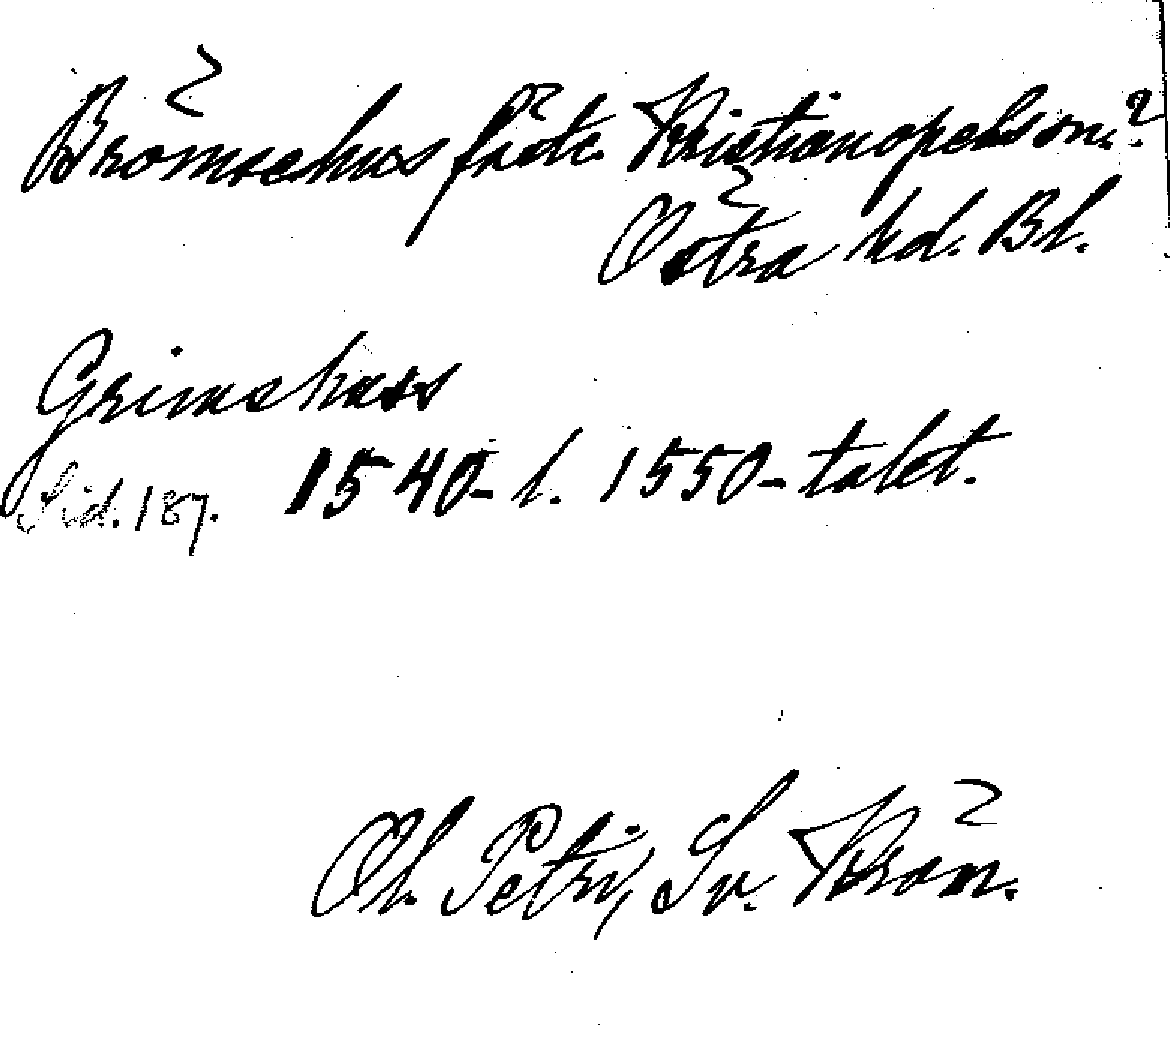 Brömsehus fäste. Kristianopels sn.?
Östra hd. Bl.
Grimshuss
Sid. 187. 1540- l. 1550-talet.
Ol. Petri, Sv. Krön.